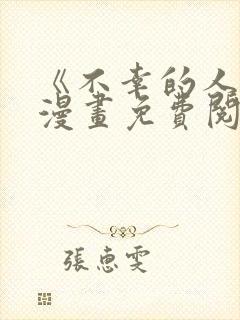 《不幸的人
漫畫免費閱
張惠雯